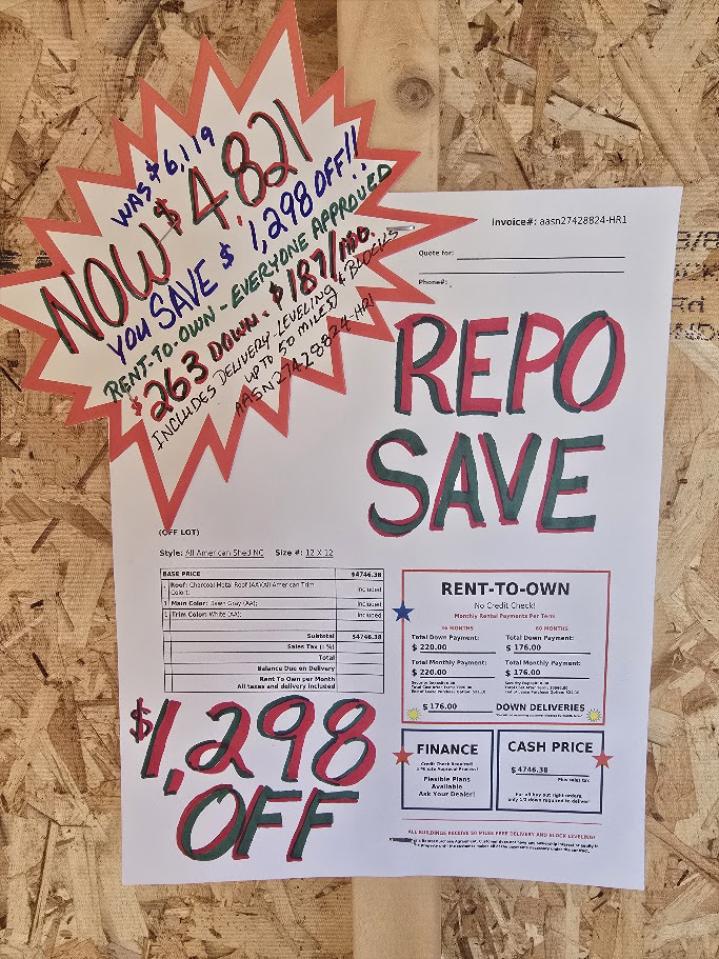 WAS $6,119
NOW $4,821
YOU SAVE $ 1,298 OFF!!
RENT-TO-OWN - EVERYONE APPROVED
$263 DOWN - $187/MO.
INCLUDES DELIVERY-LEVELING & BLOCKS
UP TO 50 MILES
AASN27428824-HR1
Invoice#: aasn27428824-HR1
Quote for:
Phone#:
REPO
SAVE
(OFF LOT)
Style: All American Shed NC Size #: 12 X 12
BASE PRICE $4746.38
Roof: Charcoal Metal Roof (AA)/All American Trim Included
Color:
Main Color: Dawn Gray (AA); Included
Trim Color: White (AA); Included
Subtotal $4746.38
Sales Tax
Total
Balance Due on Delivery
Rent To Own per Month
All taxes and delivery included
$1,298
OFF
RENT-TO-OWN
No Credit Check!
Monthly Rental Payments Per Term
36 MONTHS 60 MONTHS
Total Down Payment: Total Down Payment:
$ 220.00 $ 176.00
Total Monthly Payment: Total Monthly Payment:
$ 220.00 $ 176.00
$ 176.00 DOWN DELIVERIES
FINANCE
Credit Check Required!
Flexible Plans
Available
Ask Your Dealer!
CASH PRICE
$ 4746.38
Plus sales tax
For all buy out right orders,
only 1/2 down required to deliver!
ALL BUILDINGS RECEIVE 50 MILES FREE DELIVERY AND BLOCK LEVELING!